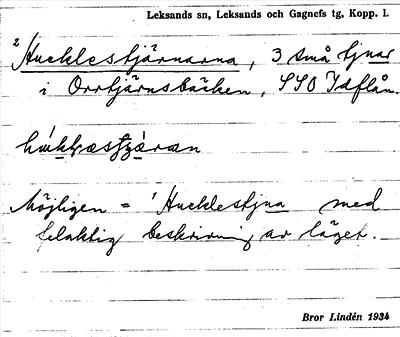 Leksands sn, Leksands och Gagnefs tg, Kopp. l.
2 Hucklestjärnarna, 3 små tjnar
i Orrtjärnsbäcken, SSO Idflån.
Möjligen = 1 Hucklestjna med
felaktig beskrivning av läget.
Bror Lindén 1934